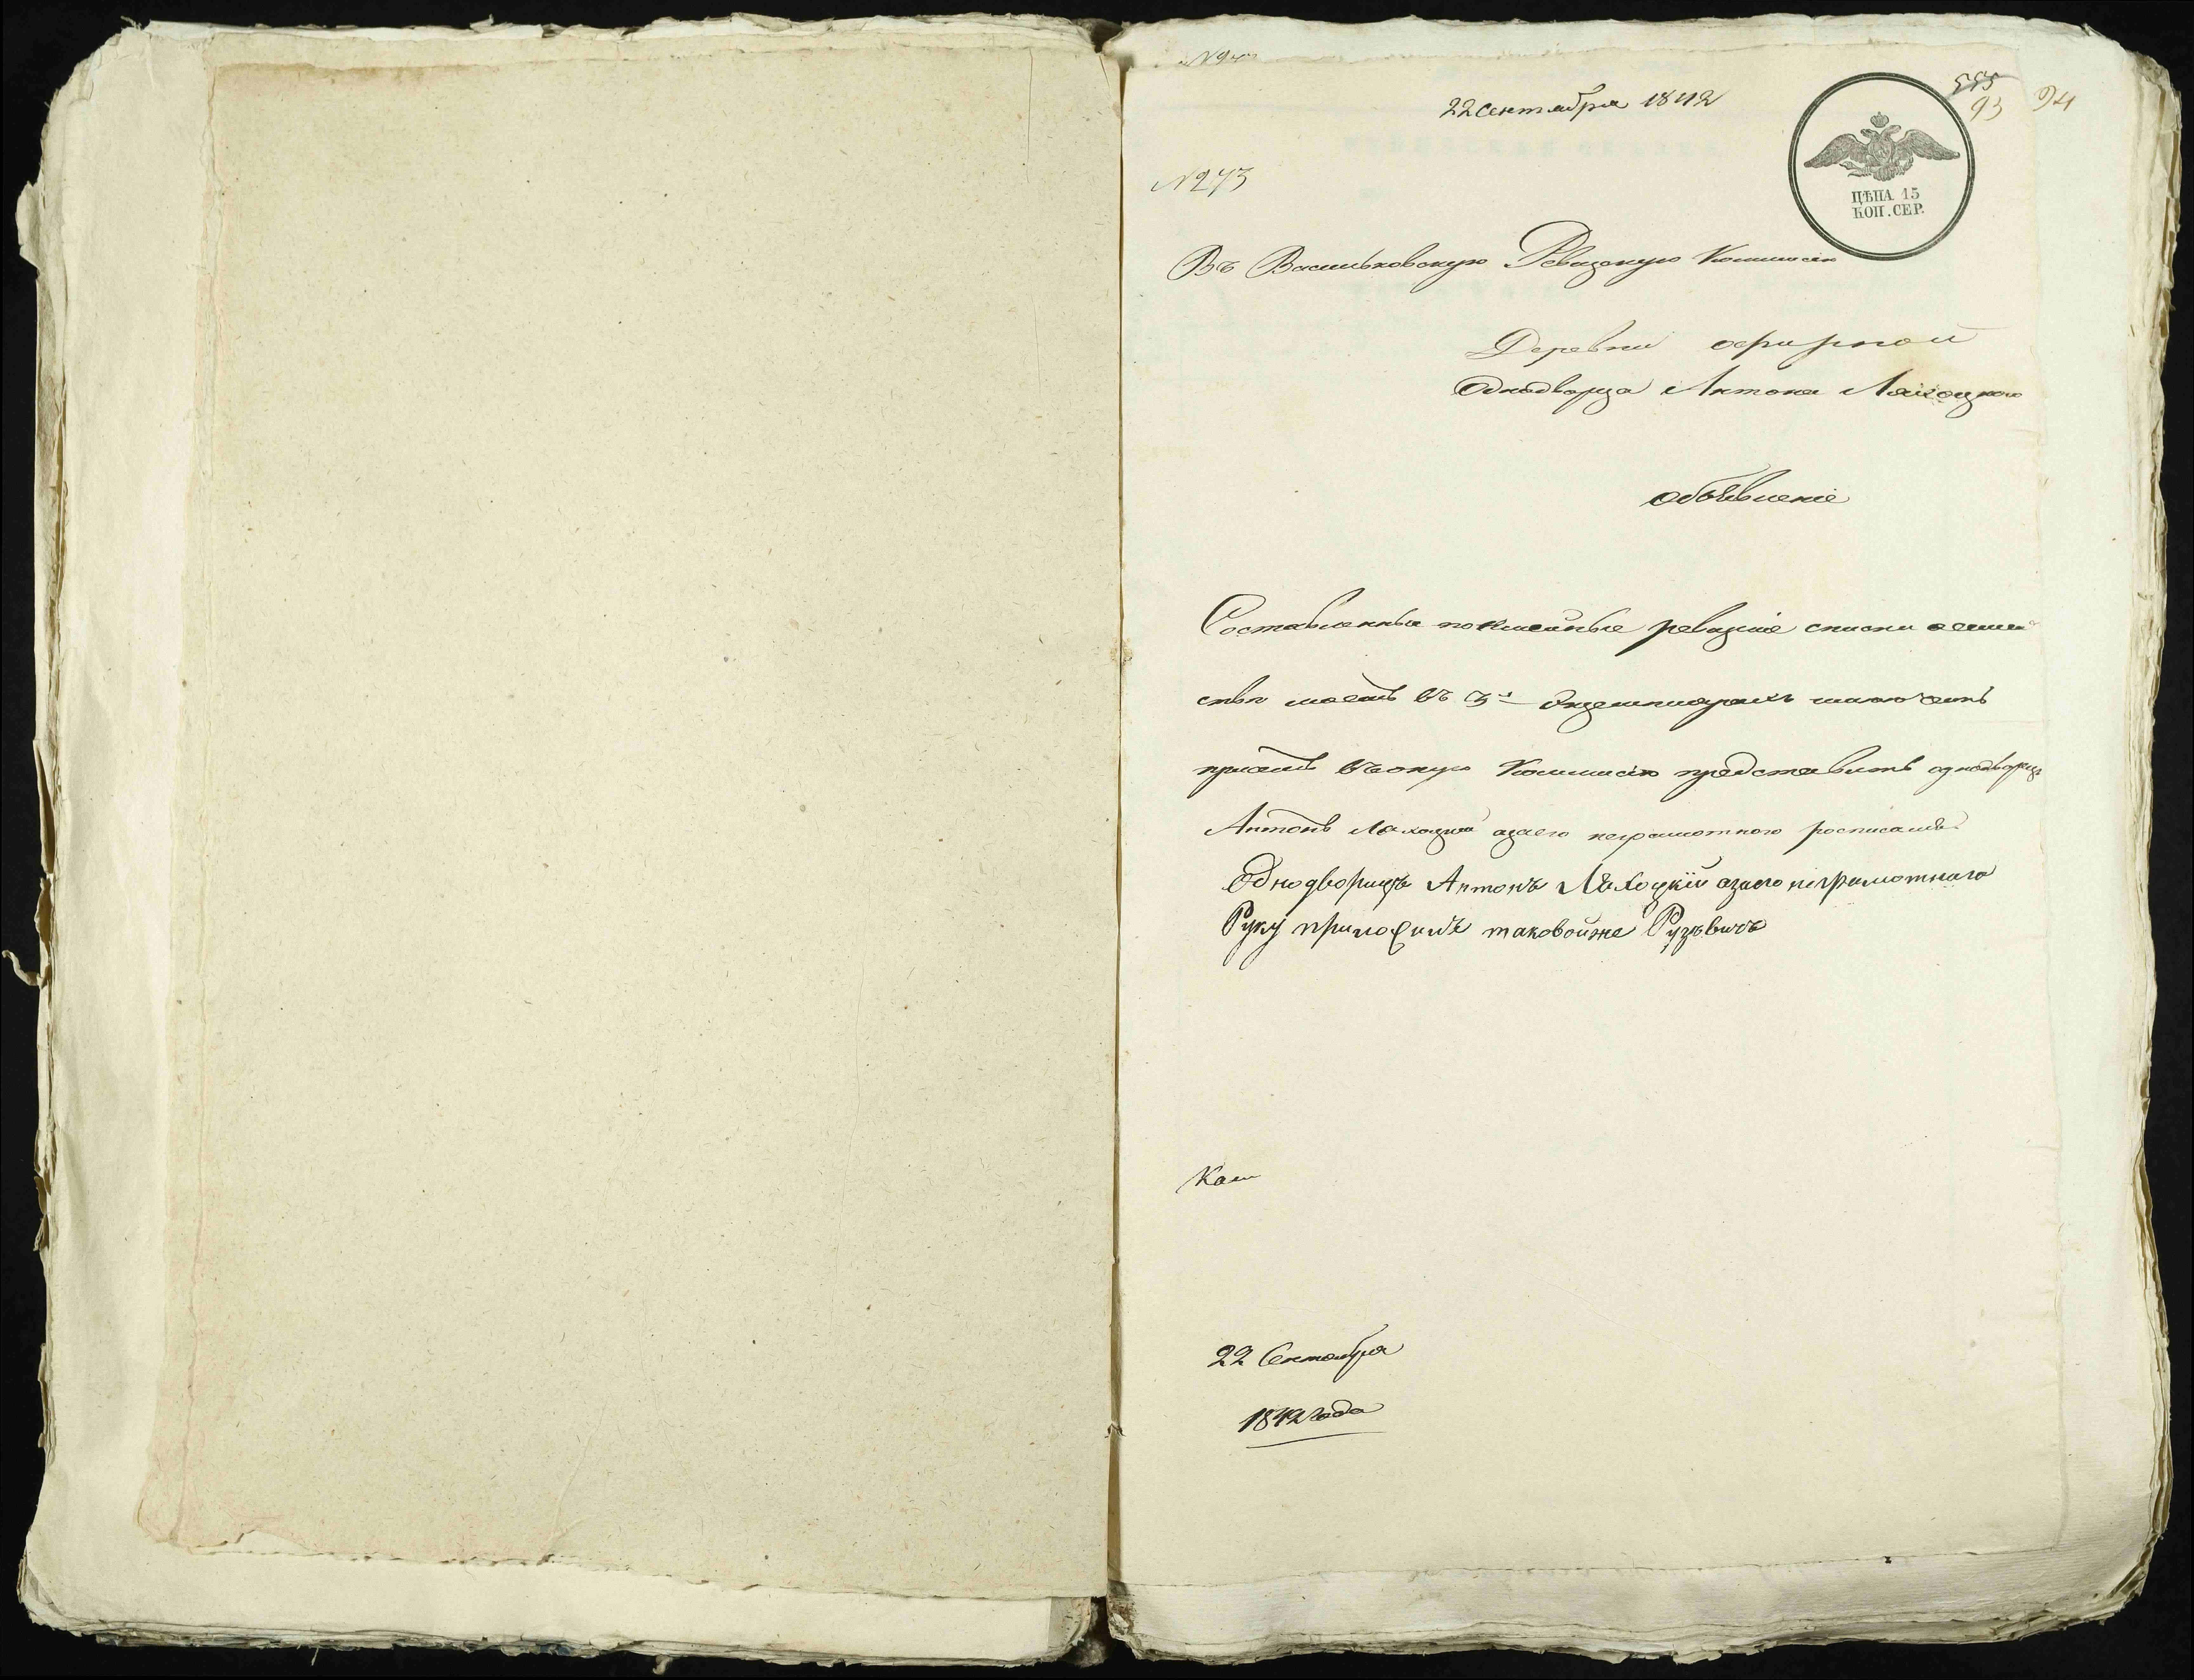 22 сентября 1842
555
93 94
№ 273
ЦѢНА 15
КОП. СЕР.
Въ Васильковскую Ревизкую Коммисію
Деревни
Однодворца Антона Ляхоцкого
объявленіе
Составленные посмейные ревизкіе списки о семей
ства моего въ 3х Экземплярахъ имею честь
при семъ въ оную Коммисію представить однодворец
Антонъ Ляхоцкій а за его неграмотного росписался
Однодворецъ Антонъ Ляхоцкій азаего неграмотнаго
Руку приложилъ таковойже
22 Сентября
1842 года